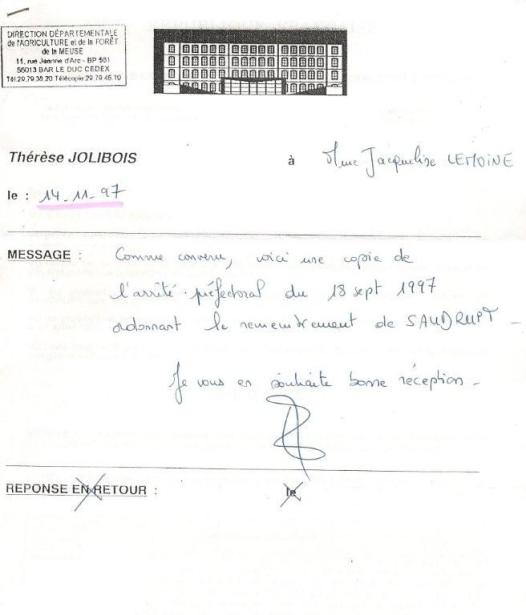 DIRECTION DÉPARTEMENTALE
de l'AGRICULTURE et de la FORÊT
de la MEUSE
11, rue Jeanne d'Arc - BP 501
55013 BAR LE DUC CEDEX
Tél 29.79.38.20 Télécopie 29.79.45.10
Thérèse JOLIBOIS à Mme Jacqueline LEMOINE
le : 14-11-97
MESSAGE : Comme convenu, voici une copie de
l'arrêté préfectoral du 18 sept 1997
ordonnant le remembrement de SAUDRUPT -
Je vous en souhaite bonne réception -
REPONSE EN RETOUR : le